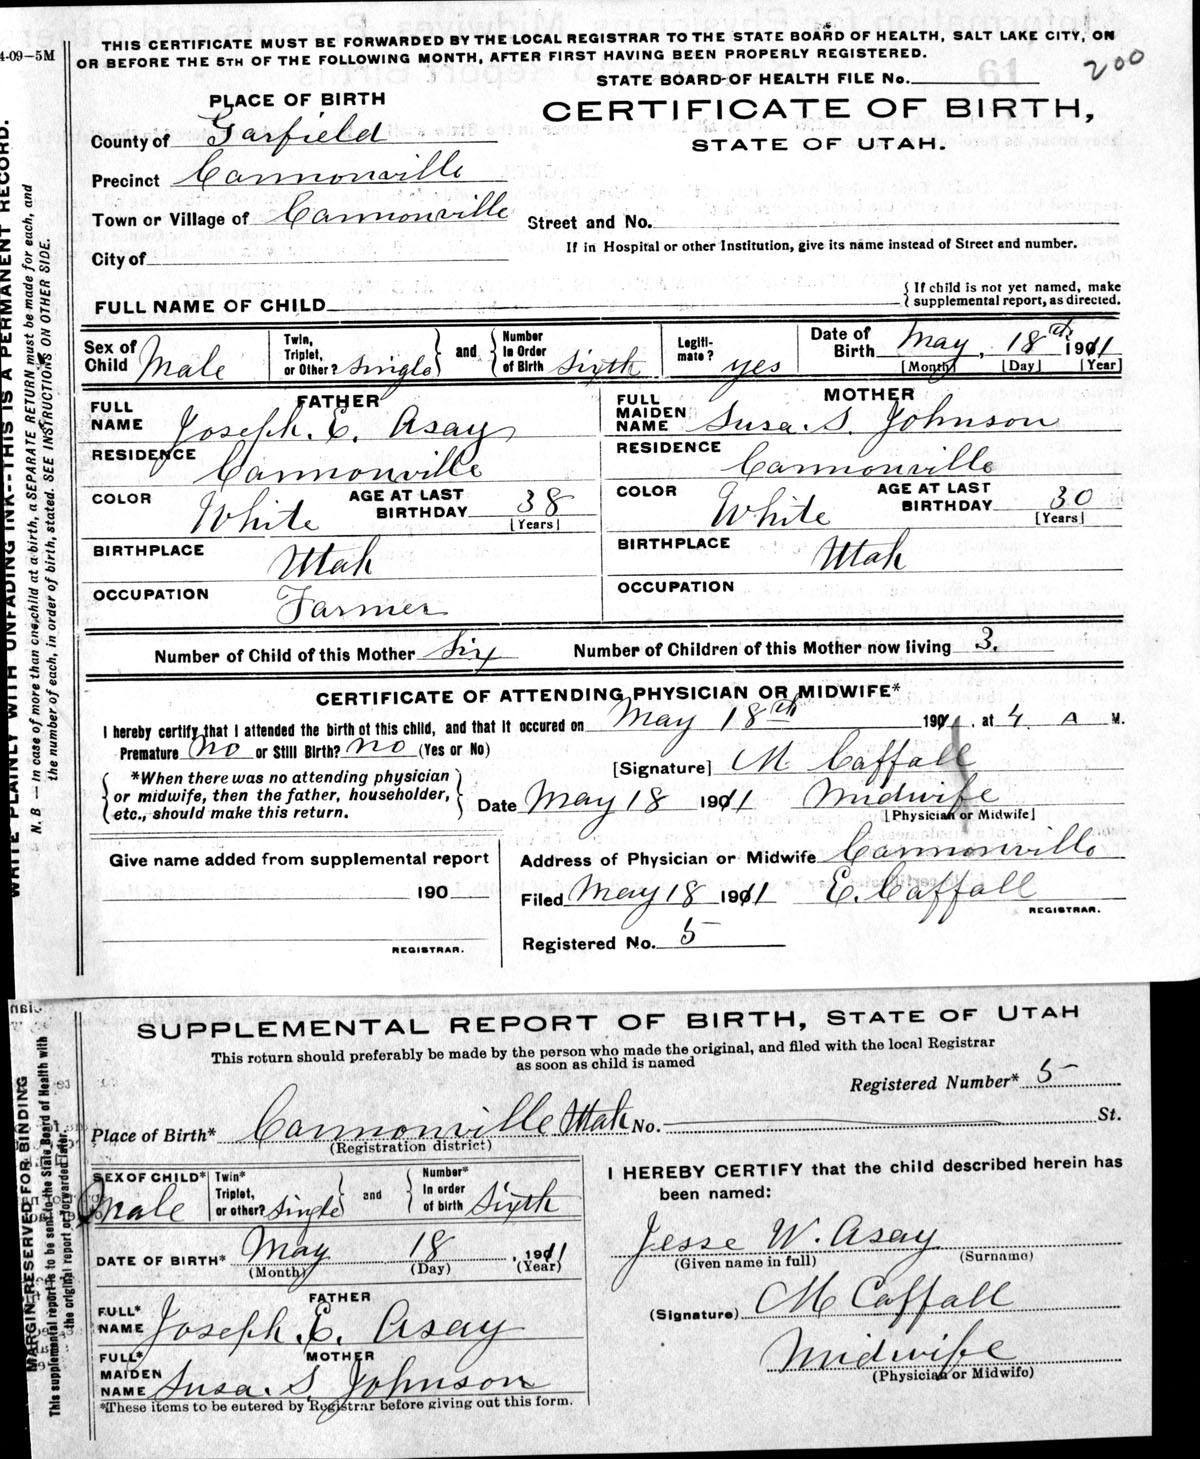 THIS CERTIFICATE MUST BE FORWARDED BY THE LOCAL REGISTRAR TO THE STATE BOARD OF HEALTH, SALT LAKE CITY, ON
OR BEFORE THE 5TH OF THE FOLLOWING MONTH, AFTER FIRST HAVING BEEN PROPERLY REGISTERED.
4-09—5M
200
STATE BOARD OF HEALTH FILE No.
PLACE OF BIRTH
CERTIFICATE OF BIRTH,
STATE OF UTAH.
County of Garfield
Precinct Cannonville
Town or Village of Cannonville
Street and No.
If in Hospital or other Institution, give its name instead of Street and number.
City of
FULL NAME OF CHILD
{ If child is not yet named, make
supplemental report, as directed.
Sex of Child Male
Twin, Triplet, or Other? Single
and
Number In Order of Birth Sixth
Legiti-mate? yes
Date of Birth May, 18th, 1911
(Month) (Day) (Year)
FATHER
FULL NAME Joseph. E. Asay
RESIDENCE Cannonville
COLOR White
AGE AT LAST BIRTHDAY 38
(Years)
BIRTHPLACE Utah
OCCUPATION Farmer
MOTHER
FULL MAIDEN NAME Susa. S. Johnson
RESIDENCE Cannonville
COLOR White
AGE AT LAST BIRTHDAY 30
(Years)
BIRTHPLACE Utah
OCCUPATION
Number of Child of this Mother Six
Number of Children of this Mother now living 3.
CERTIFICATE OF ATTENDING PHYSICIAN OR MIDWIFE*
I hereby certify that I attended the birth of this child, and that it occured on May 18th 1911, at 4 A M.
Premature no or Still Birth? no (Yes or No)
[Signature] M Caffall
*When there was no attending physician
or midwife, then the father, householder,
etc., should make this return.
Date May 18 1911 Midwife
[Physician or Midwife]
Give name added from supplemental report
190
REGISTRAR.
Address of Physician or Midwife Cannonville
Filed May 18 1911 E. Caffall
REGISTRAR.
Registered No. 5
WRITE PLAINLY WITH UNFADING INK--THIS IS A PERMANENT RECORD.
N. B — In case of more than one child at a birth, a SEPARATE RETURN must be made for each, and
the number of each, in order of birth, stated. SEE INSTRUCTIONS ON OTHER SIDE.
SUPPLEMENTAL REPORT OF BIRTH, STATE OF UTAH
This return should preferably be made by the person who made the original, and filed with the local Registrar
as soon as child is named
Registered Number* 5
Place of Birth* Cannonville Utah No. St.
(Registration district)
SEX OF CHILD* Male
Twin* Triplet, or other? Single
and
Number* In order of birth Sixth
DATE OF BIRTH* May 18, 1911
(Month) (Day) (Year)
FATHER
FULL* NAME Joseph. E. Asay
MOTHER
FULL* MAIDEN NAME Susa. S. Johnson
*These items to be entered by Registrar before giving out this form.
I HEREBY CERTIFY that the child described herein has
been named:
Jesse W. Asay
(Given name in full) (Surname)
(Signature) M Caffall
Midwife
(Physician or Midwife)
MARGIN RESERVED FOR BINDING
This supplemental report is to be sent to the State Board of Health with
the original report or forwarded later.